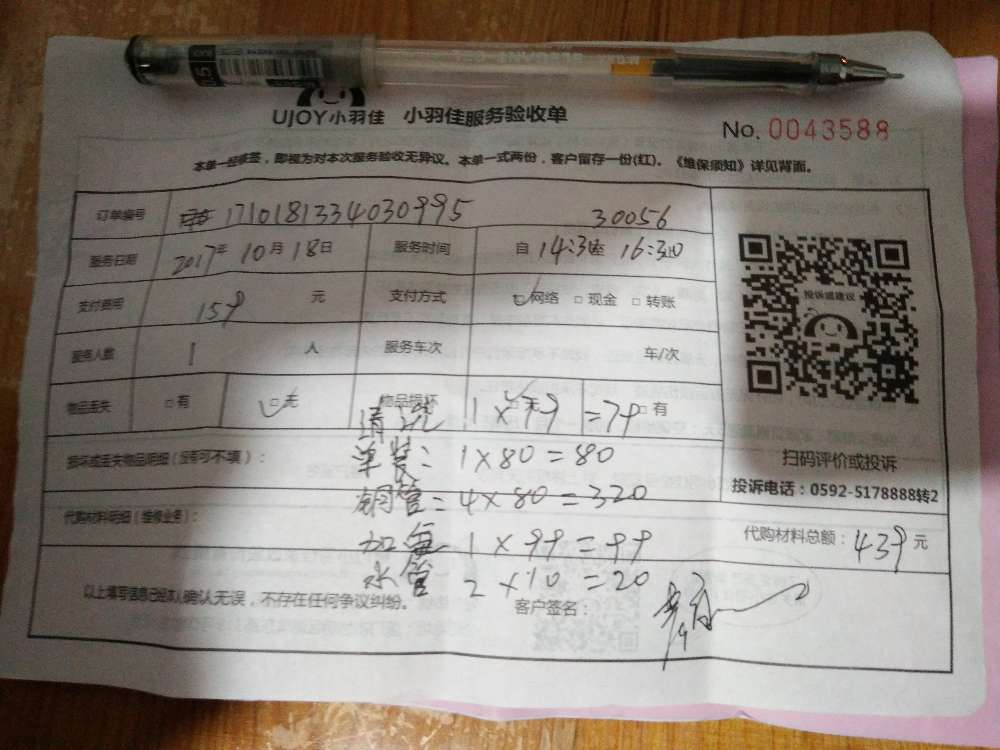 UJOY小羽佳 小羽佳服务验收单
No. 0043588
本单一经签,即视为对本次服务验收无异议。本单一式两份,客户留存一份(红)。《维保须知》详见背面。
订单编号 1710181334030995 30056
服务日期 2017年 10月 18日 服务时间 自 14:30至 16:30
支付费用 159 元 支付方式 网络 □ 现金 □ 转账
服务人数 1 人 服务车次 车/次
物品丢失 □ 有 □ 无 物品损坏 □ 无 □ 有
清洗 1×79=79
损坏或丢失物品明细(没有可不填):
单装: 1×80=80
铜管: 4×80=320
代购材料明细(维修业务):
加氟 1×99=99
水管 2×10=20
代购材料总额: 439 元
以上填写信息已经本人确认无误,不存在任何争议纠纷。 客户签名:
投诉或建议
扫码评价或投诉
投诉电话:0592-5178888转2